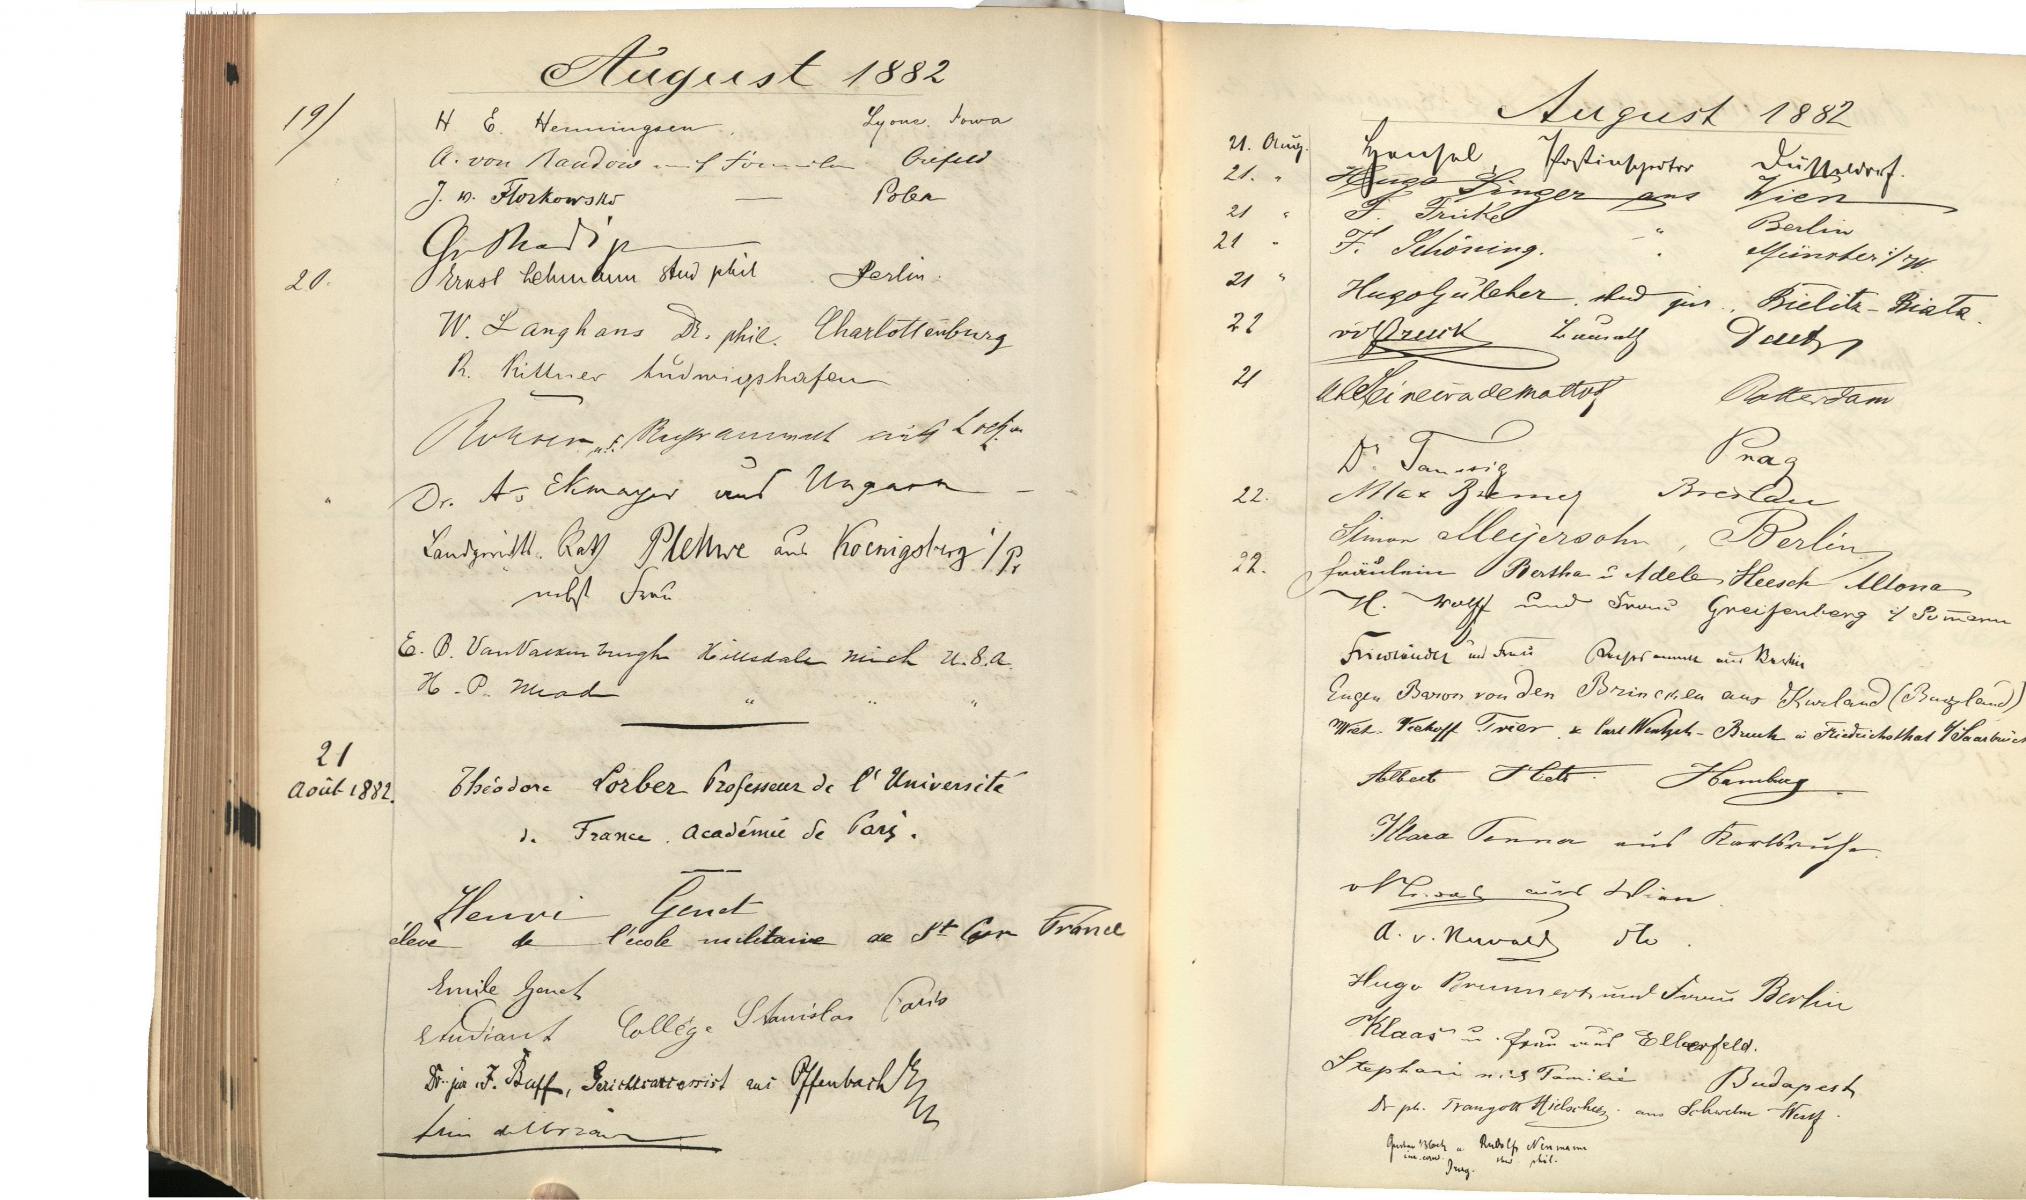 August 1882
19/
H E. Henningsen, Lyons. Iowa
A. von Familie Crefeld
J. v. Florkowski — Polen
20. Ernst Lehmann stud phil Berlin.
W. Langhans Dr. phil. Charlottenburg
R. Kittner Ludwigshafen
mit
" Dr. A. Ekmayer aus Ungarn
Landgerichts. Rath Plehwe aus Koenigsberg i/Pr
nebst Frau
E. B. VanValkenburgh Hillsdale Mich U.S.A.
H. P. Mead " " "
21
Août 1882.
Théodore Lorber Professeur de l'Université
de France. Académie de Paris.
Henri Genet
élève de l'école militaire de St Cyr France
Emile Genet
Etudiant Collége Stanislas Paris
Dr. jur. F. Buff, Gerichtsaccessist aus Offenbach
August 1882
21. Aug. Hensel, Postinspector Düsseldorf.
21. " Hugo Singer aus Wien
21 " F. Fricke " Berlin
21 " F. Schöning. " Münster i/W.
21 " Hugo Gülcher, stud jur, Bielitz-Biala.
21 Deutz
21 Rotterdam
Dr. Taussig Prag
22. Max Breslau
Simon Meyersohn, Berlin
22. Fräulein Bertha u Adele Heesch Altona
H. Wolff und Frau Greifenberg i/ Pommern
Friedländer und Frau aus Berlin
Eugen Baron von den Brincken aus Kurland
Viehoff Trier, & Carl Wentzel- Friedrichsthal b/Saarbrück
Albert Hamburg.
Klara Tenner aus Karlsruhe.
aus Wien.
A. v. dto.
Hugo Brunnert und Frau Berlin
Klaas u. Frau aus Elberfeld.
Stephani mit Familie Budapest
Dr ph. Traugott Hielscher aus Schwelm Westf.
Gustav u Rudolf Neumann
stud. phil.